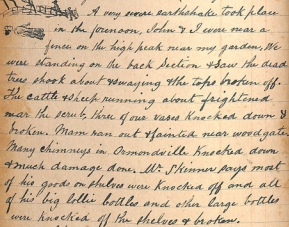 A very severe earthshake took place
in the forenoon, John & I were near a
fence on the high peak near my garden. We
were standing on the back Section & saw the dead
trees shook about & swaying & the tops broken off.
The cattle & sheep running about frightened
near the scrub, three of our vases Knocked down &
broken. Mam ran out & fainted near woodgate.
Many chimneys in Ormondville Knocked down
& much damage done. Mr Skinner says most
of his goods on shelves were Knocked off and all
of his big lollie bottles and other large bottles
were knocked off the shelves & broken.